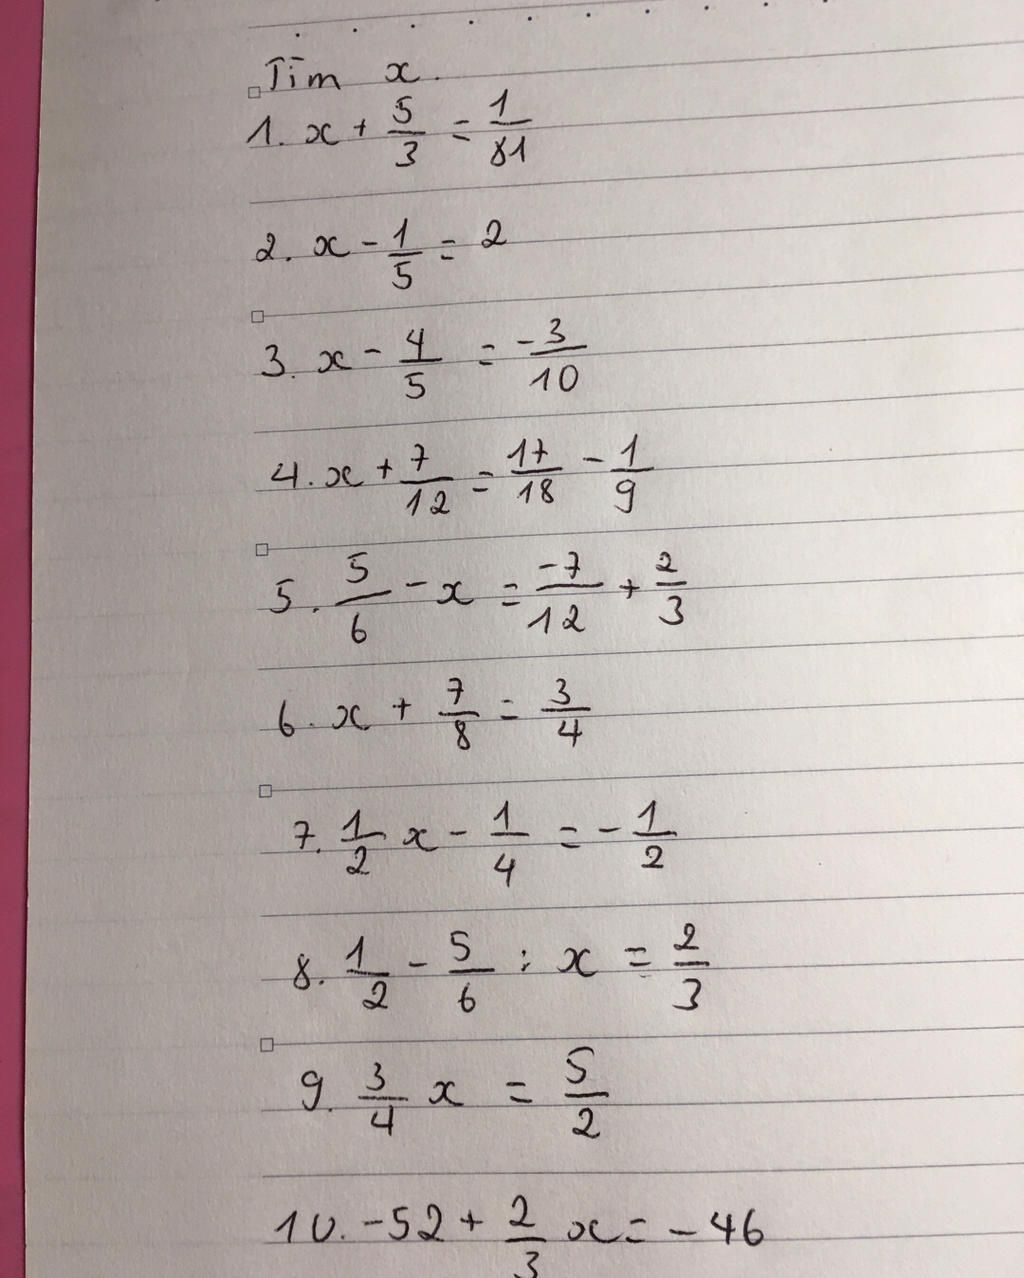 Tìm x.
1. x + 5/3 = 1/81
2. x - 1/5 = 2
3. x - 4/5 = -3/10
4. x + 7/12 = 17/18 - 1/9
5. 5/6 - x = -7/12 + 2/3
6. x + 7/8 = 3/4
7. 1/2 x - 1/4 = - 1/2
8. 1/2 - 5/6 : x = 2/3
9. 3/4 x = 5/2
10. -52 + 2/3 x = -46